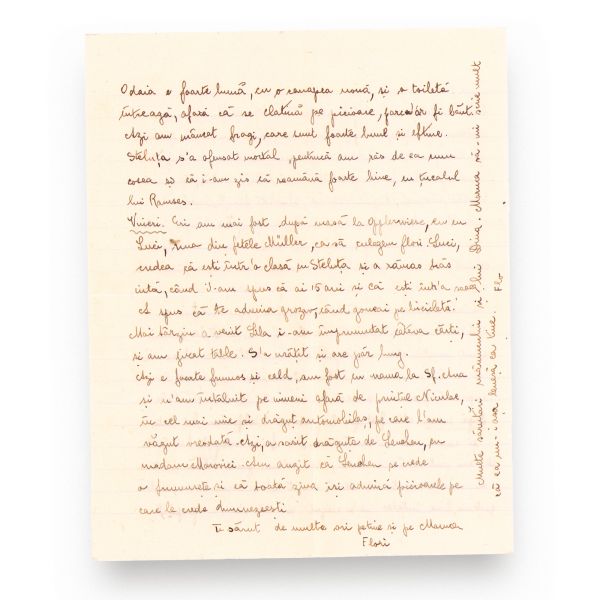 Odaia e foarte bună, cu o canapea nouă, și o toiletă
întreagă, afară că se clatină pe picioare, parc'ar fi băut.
Azi am mâncat fragi, care sunt foarte buni și eftini.
Steluța s'a ofensat mortal, pentrucă am râs de ea cum
cosea și că i-am zis că seamănă foarte bine, cu
lui Ramses.
Vineri. Eri am mai fost după masă la cu
Luci, una din fetele Müller, ca să culegem flori. Luci,
credea că ești într'o clasă cu Steluța și a rămas
când i-am spus că ai 15 ani și că ești într'a
A spus că te admira grozav, când jucai pe bicicletă.
Mai târziu a venit Lila i-am împrumutat câteva cărți,
și am jucat table. S'a urâțit și are păr lung.
Azi e foarte frumos și cald, am fost cu mama la Sf. Ana
și n'am întâlnit pe nimeni afară de prințu Nicolae,
în cel mai mic și drăguț automobilaș, pe care l'am
văzut vreodată. Azi, a sosit drăguța de cu
madam Am auzit că se crede
o frumusețe și că toată ziua își admiră picioarele pe
care le crede dumnezeești.
Te sărut de multe ori pe tine și pe Mama
Flori
Multe sărutări mămmichii și lui Dina. Mama să-mi scrie mult
că ea nu-i așa ca tine. Flo